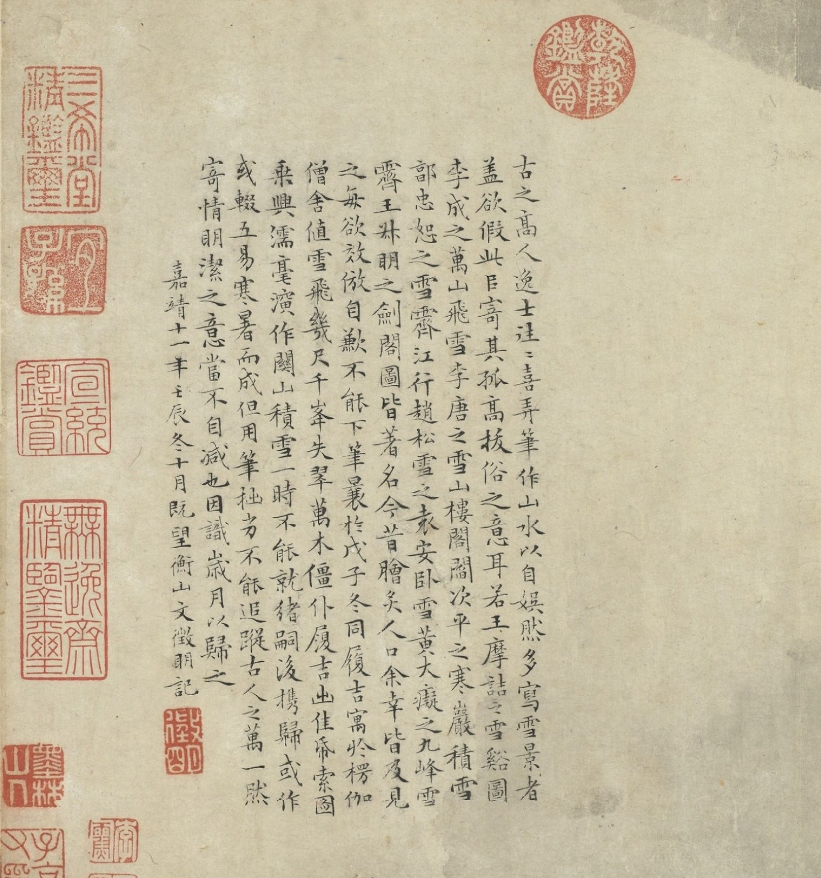 乾隆鑑賞
古之高人逸士往〻喜弄筆作山水以自娛然多寫雪景者
盖欲假此以寄其孤高拔俗之意耳若王摩詰之雪谿圖
李成之萬山飛雪李唐之雪山樓閣閻次平之寒巖積雪
郭忠恕之雪霽江行趙松雪之袁安卧雪黃大癡之九峰雪
霽王叔明之劍閣圖皆著名今昔膾炙人口余幸皆及見
之每欲效倣自歉不能下筆曩於戊子冬同履吉寓於楞伽
僧舍值雪飛幾尺千峯失翠萬木僵仆履吉出佳紙索圖
乗興濡毫演作關山積雪一時不能就緒嗣後携歸或作
或輟五易寒暑而成但用筆拙劣不能追蹤古人之萬一然
寄情明潔之意當不自減也因識歲月以歸之
嘉靖十一年壬辰冬十月既望衡山文徵明記
徵明
三希堂
精鑑璽
宜子孫
宣統
鑑賞
無逸齋
精鑒璽
墨林
山人